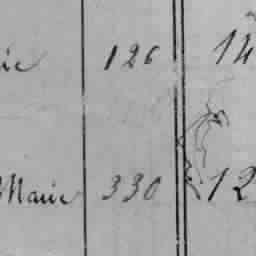 ie 126 14
Marie 330 12